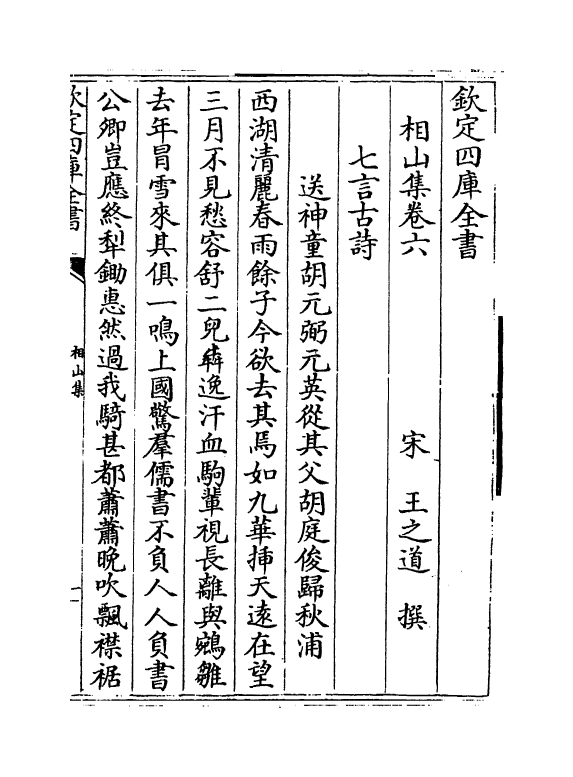 欽定四庫全書
相山集卷六
宋　王之道　撰
七言古詩
送神童胡元弼元英從其父胡庭俊歸秋浦
西湖清麗春雨餘子今欲去其焉如九華揷天遠在望
三月不見愁容舒二兒犇逸汗血駒輩視長離與鵷雛
去年冐雪來其俱一鳴上國驚羣儒書不負人人負書
公卿豈應終犁鋤恵然過我騎甚都蕭蕭晚吹飄襟裾
欽定四庫全書
相山集
一